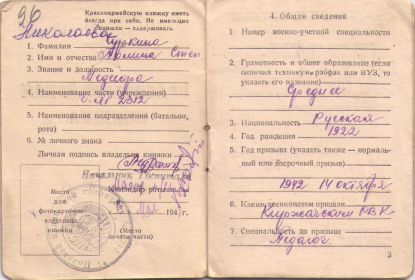 96
Красноармейскую книжку иметь
всегда при себе. Не имеющих
книжки — задерживать
Николаевой
1. Фамилия Чуркина
2. Имя и отчество Полина Степ
3. Звание и должность
Медсестра
4. Наименование части (учреждения)
2312
5. Наименование подразделения (батальон,
рота)
6. № личного знака
Личная подпись владельца книжки
Начальник Госпиталя
Командир роты
Место
для
фотокарточки
владельца
книжки
Мая 194
(Место
печати части)
4. Общие сведения
1. Номер военно-учетной специальности
2. Грамотность и общее образование (если
окончил техникум, рабфак или ВУЗ, то
указать его название)
Среднее
3. Национальность Русская
4. Год рождения 1922
5. Год призыва (указать также — нормаль-
ный или досрочный призыв)
1942 14 октября
6. Каким военкоматом призван
РВК
7. Специальность до призыва
Педагог
3